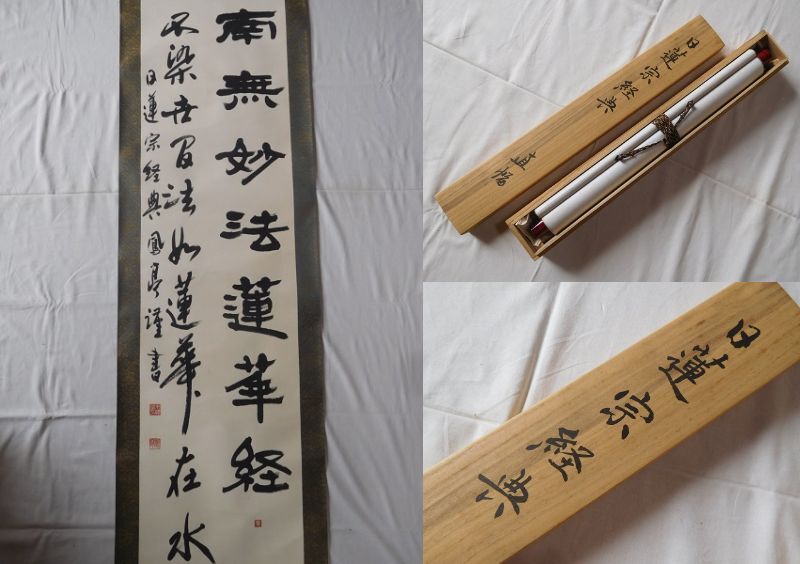 南無妙法蓮華経
不染世間法如蓮華在水
日蓮宗経典鳳亭謹書
日蓮宗経典
直幅
日蓮宗経典